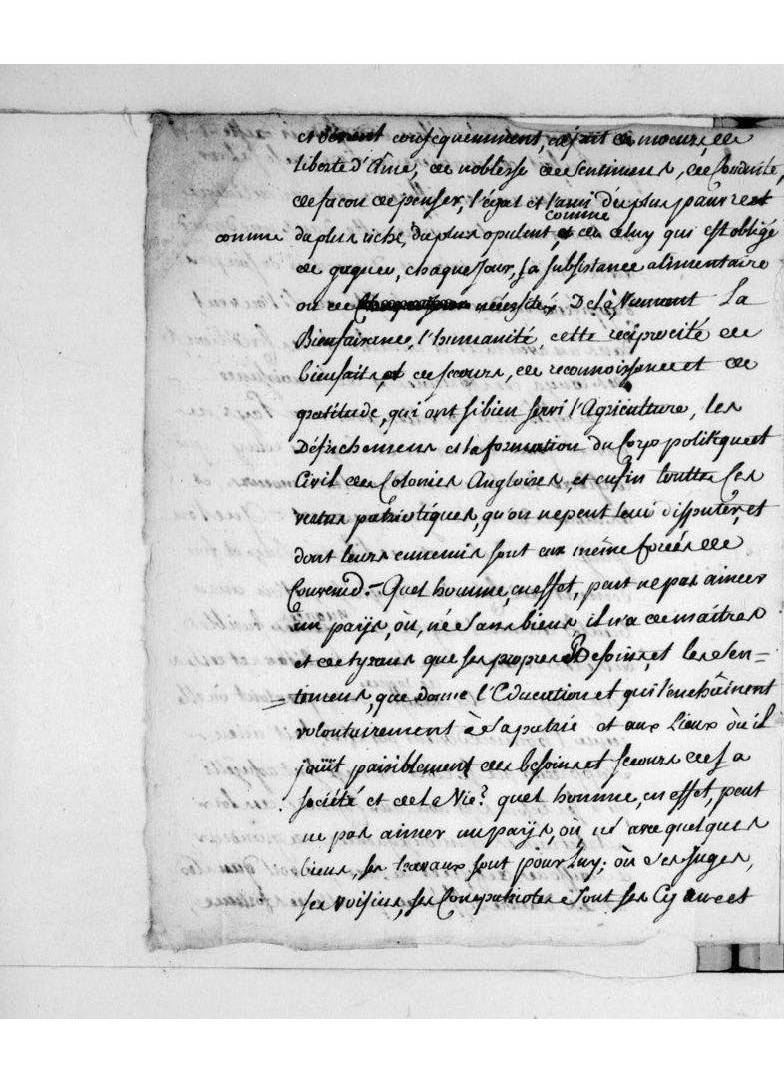 et devient conséquemment, à l'égard de mœurs, de
liberté d'âme, de noblesse de sentimens, de Conduite,
de façon de penser, l'égal et l'ami du plus pauvre et
comme
comme du plus riche, du plus opulent, et de celuy qui est obligé
de gagner, chaque Jour, sa subsistance alimentaire
ou de nécessité. De là, Viennent La
Bienfaisance, l'humanité, cette réciprocité de
bienfaits, et de secours, de reconnoissance et de
gratitude, qui ont si bien servi l'Agriculture, les
Défrichemens et la formation du Corps politique et
Civil des Colonies Angloises, et enfin toutes Ces
vertus patriotiques, qu'on ne peut leur disputer, et
dont leurs ennemis sont eux même forcés de
Convenir. - Quel homme, en effet, peut ne pas aimer
un pays, où, né sans biens, il n'a de maitres
et de tyrans que ses propres Besoins, et les Sen=
=timens, que donne l'Education et qui l'enchâinent
volontairement à Sa patrie et aux Lieux où il
joüit paisiblement des besoins et secours de sa
société et de la Vie? quel homme, en effet, peut
ne pas aimer un pays, où, né avec quelques
biens, ses travaux sont pour Luy; où Ses Juges,
ses voisins, ses Compatriotes Sont ses Egaux et